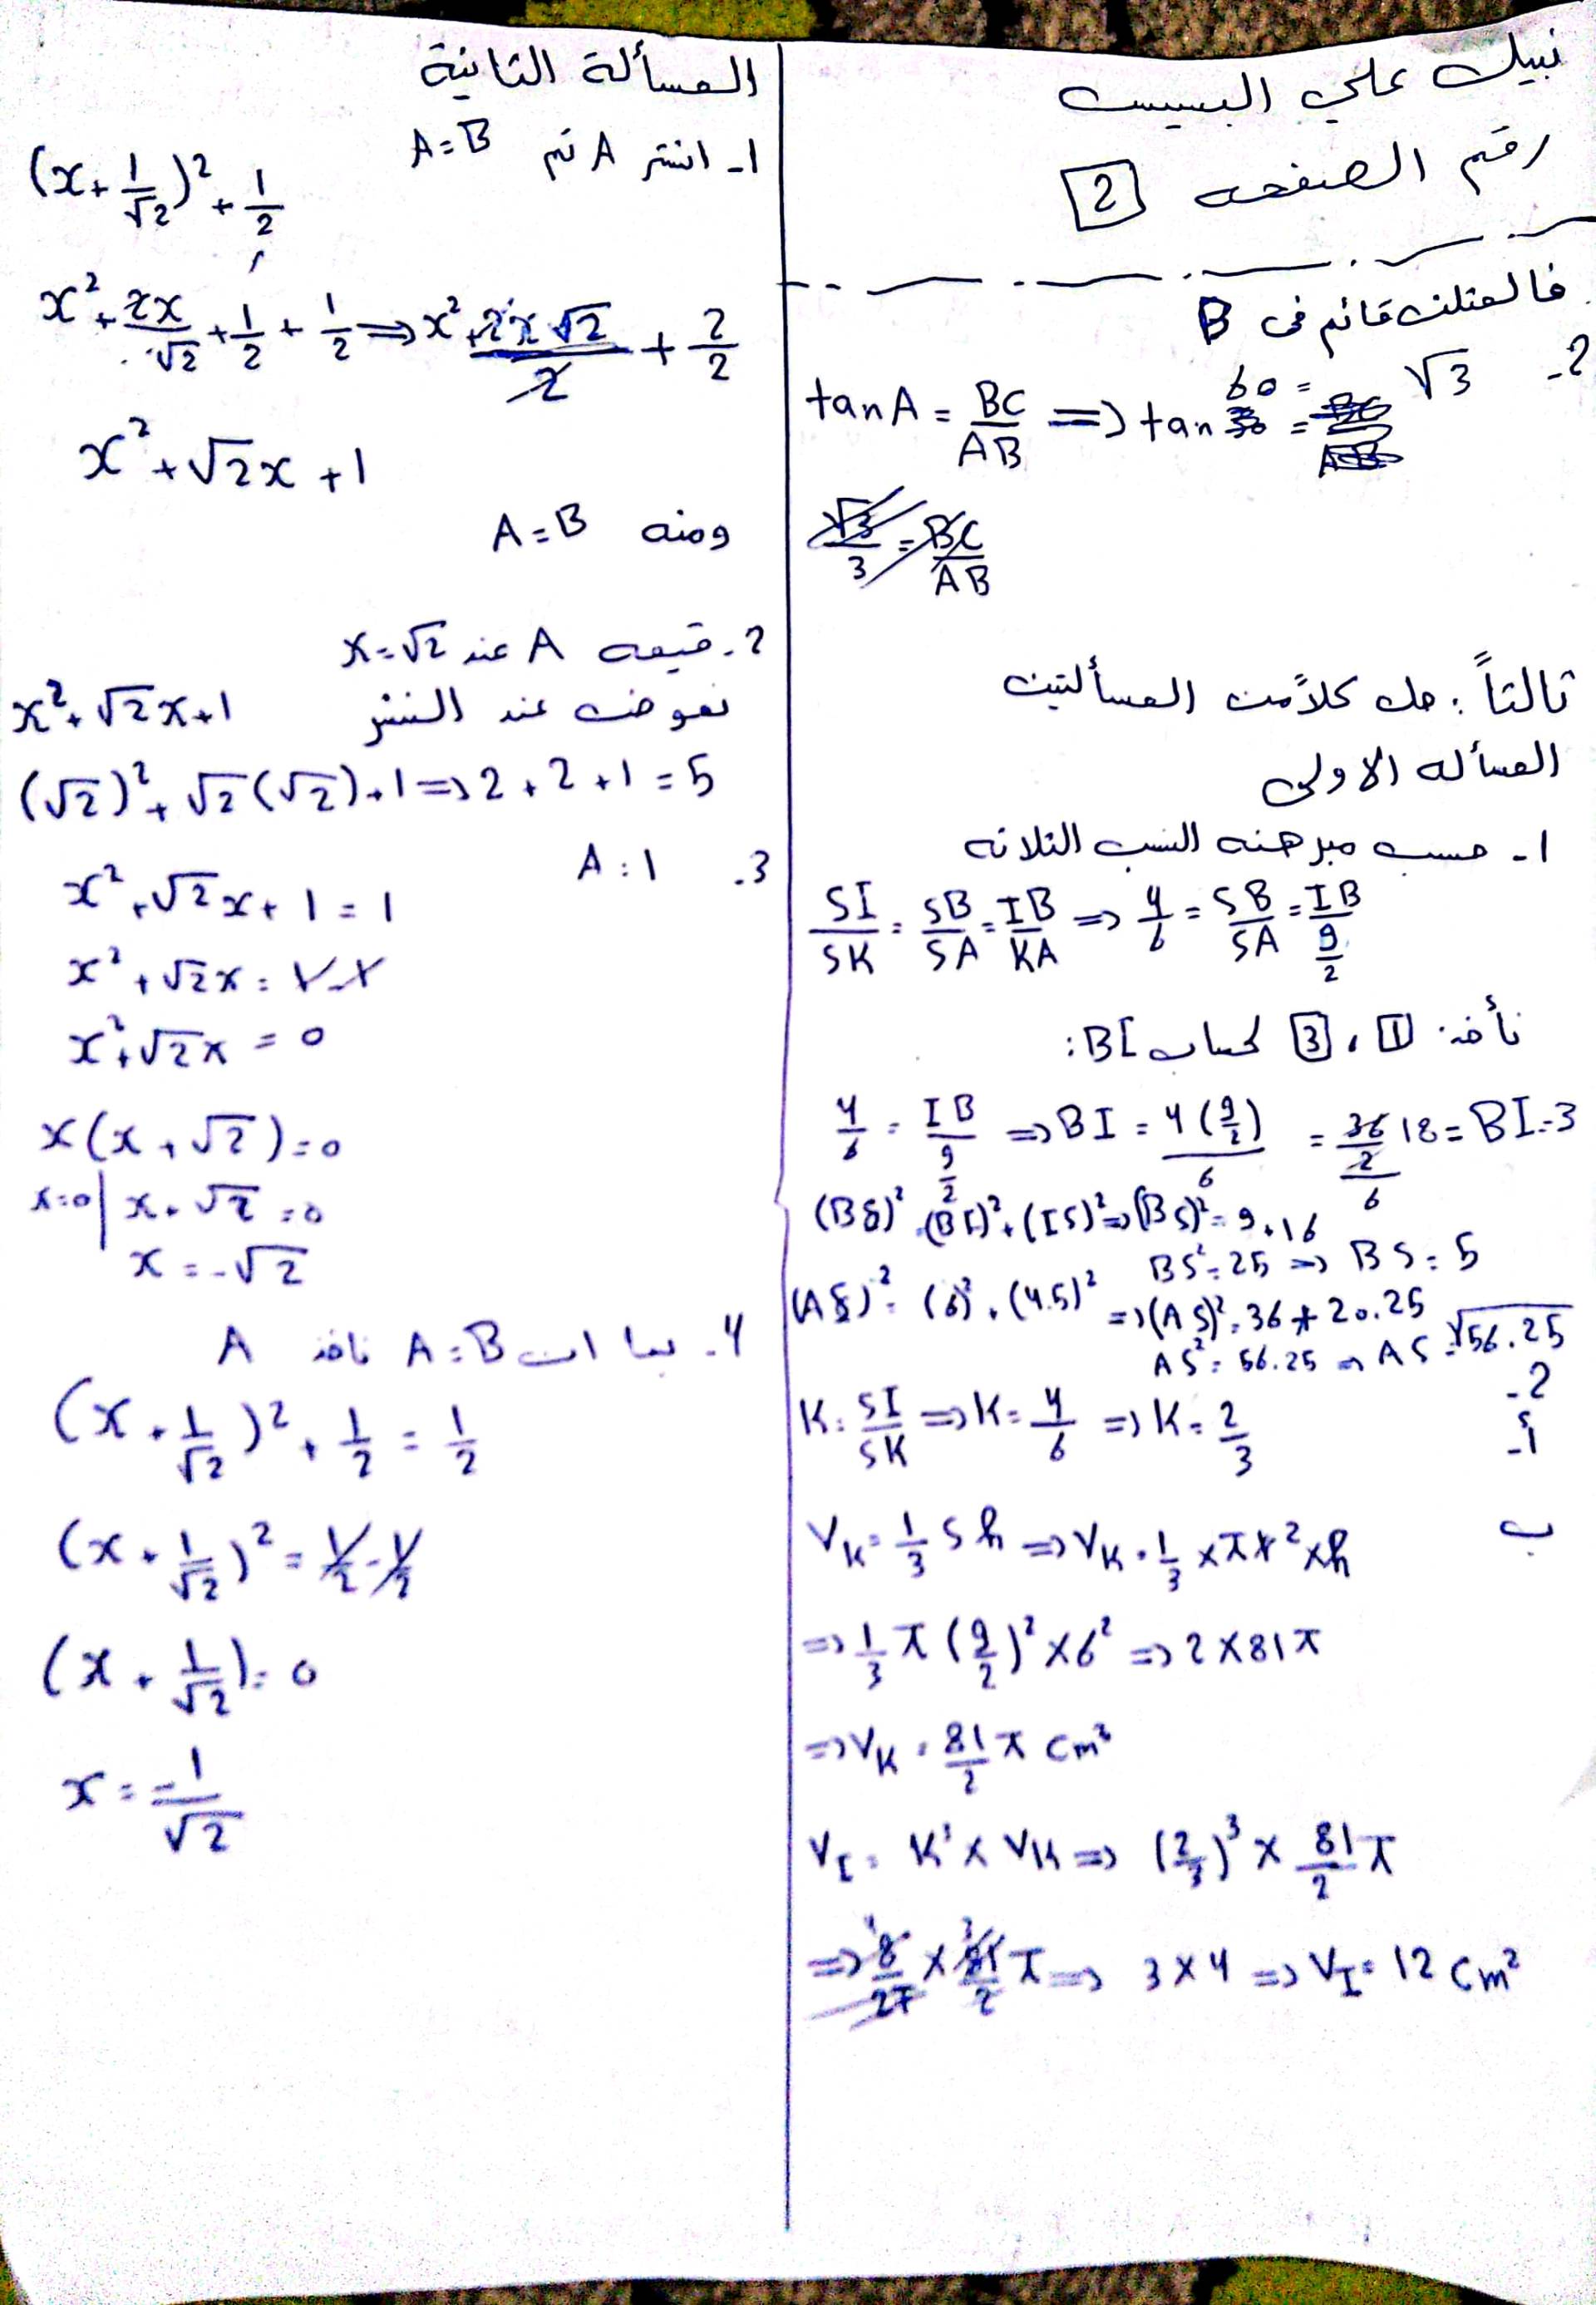 نبيل علي البسيس
رقم الصفحه 2
فالمثلث قائم في B
2- tan A = BC/AB ⇒ tan 60 = √3
BC/AB
ثالثاً: حل كلاً من المسألتين
المسأله الاولى
1- حسب مبرهنه النسب الثلاثه
SI/SK = SB/SA = IB/KA ⇒ 4/6 = SB/SA = IB/(9/2)
نأخذ 1 ، 3 لحساب BI:
4/6 = IB/(9/2) ⇒ BI = 4(9/2)/6 = (36/2)/6 18 = BI = 3
(BS)² = (BI)² + (IS)² ⇒ (BS)² = 9 + 16
BS² = 25 ⇒ BS = 5
(AS)² = (6)² + (4.5)² ⇒ (AS)² = 36 + 20.25
AS² = 56.25 ⇒ AS = √56.25
2-
أ- K = SI/SK ⇒ K = 4/6 ⇒ K = 2/3
ب V_K = 1/3 S h ⇒ V_K = 1/3 × π r² × h
⇒ 1/3 π (9/2)² × 6² ⇒ 2 × 81 π
⇒ V_K = 81/2 π cm³
V_I = K³ × V_K ⇒ (2/3)³ × 81/2 π
⇒ 8/27 × 81/2 π ⇒ 3 × 4 ⇒ V_I = 12 cm³
المسألة الثانية
1- انشر A ثم A = B
(x + 1/√2)² + 1/2
x² + 2x/√2 + 1/2 + 1/2 ⇒ x² + 2x√2/2 + 2/2
x² + √2x + 1
ومنه A = B
2- قيمه A عند x = √2
نعوض عند النشر x² + √2x + 1
(√2)² + √2(√2) + 1 ⇒ 2 + 2 + 1 = 5
3- A = 1
x² + √2x + 1 = 1
x² + √2x = 1 - 1
x² + √2x = 0
x(x + √2) = 0
x = 0 | x + √2 = 0
x = -√2
4- بما ان A = B ناخذ A
(x + 1/√2)² + 1/2 = 1/2
(x + 1/√2)² = 1/2 - 1/2
(x + 1/√2) = 0
x = -1/√2